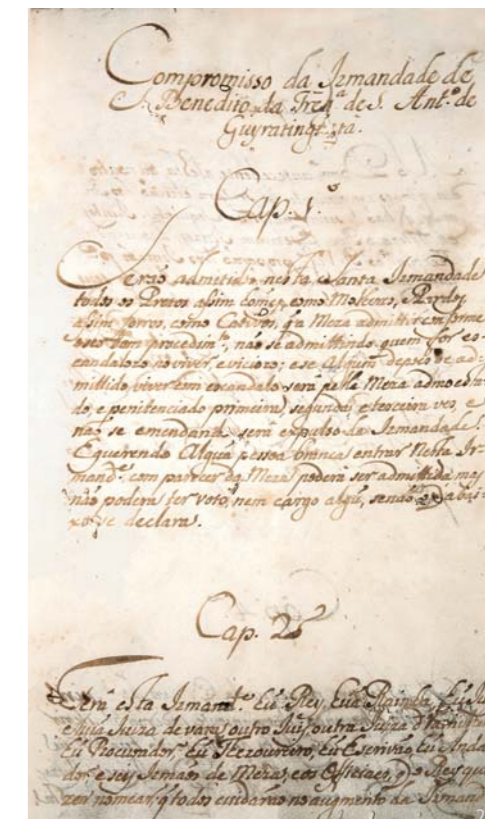 Compromisso da Irmandade de
S. Benedito da Freg.ª de S. Ant.º de
Guyratinget.tá.
Cap. 1.º
Serão admitidos nesta Santa Irmandade
todos os Pretos assim homẽs, como Molheres, e Pardos,
assim forros, como Cativos, q̃ a Meza admittir conforme
o seu bom procedim.to, não se admittindo quem for es-
candalozo no viver, e vicioso; e se Algum depois de ad-
mittido viver em escandalo será pella Meza admoesta-
do, e penitenciado primeira, segunda, e terceira vez, e
não se emendando será expulso da Irmandade.
E querendo Algũa pessoa branca entrar Nesta Ir-
mand.e com parecer da Meza poderá ser admittida mas
não poderá ter voto, nem cargo algũ, senão a abai-
xo se declara.
Cap. 2.º
Terá esta Irmand.e Hũ Rey, Hũa Rainha, Hũ Juiz
e Hũa Juiza de vara, outro Juiz, outra Juiza
Hũ Procurador, Hũ Thezoureiro, Hũ Escrivão, Hũ Anda-
dor, e seis Irmãos de Meza, e os Officiaes, q̃ o Rey qui-
zer nomear, q̃ todos cuidarão no augmento da Irmand